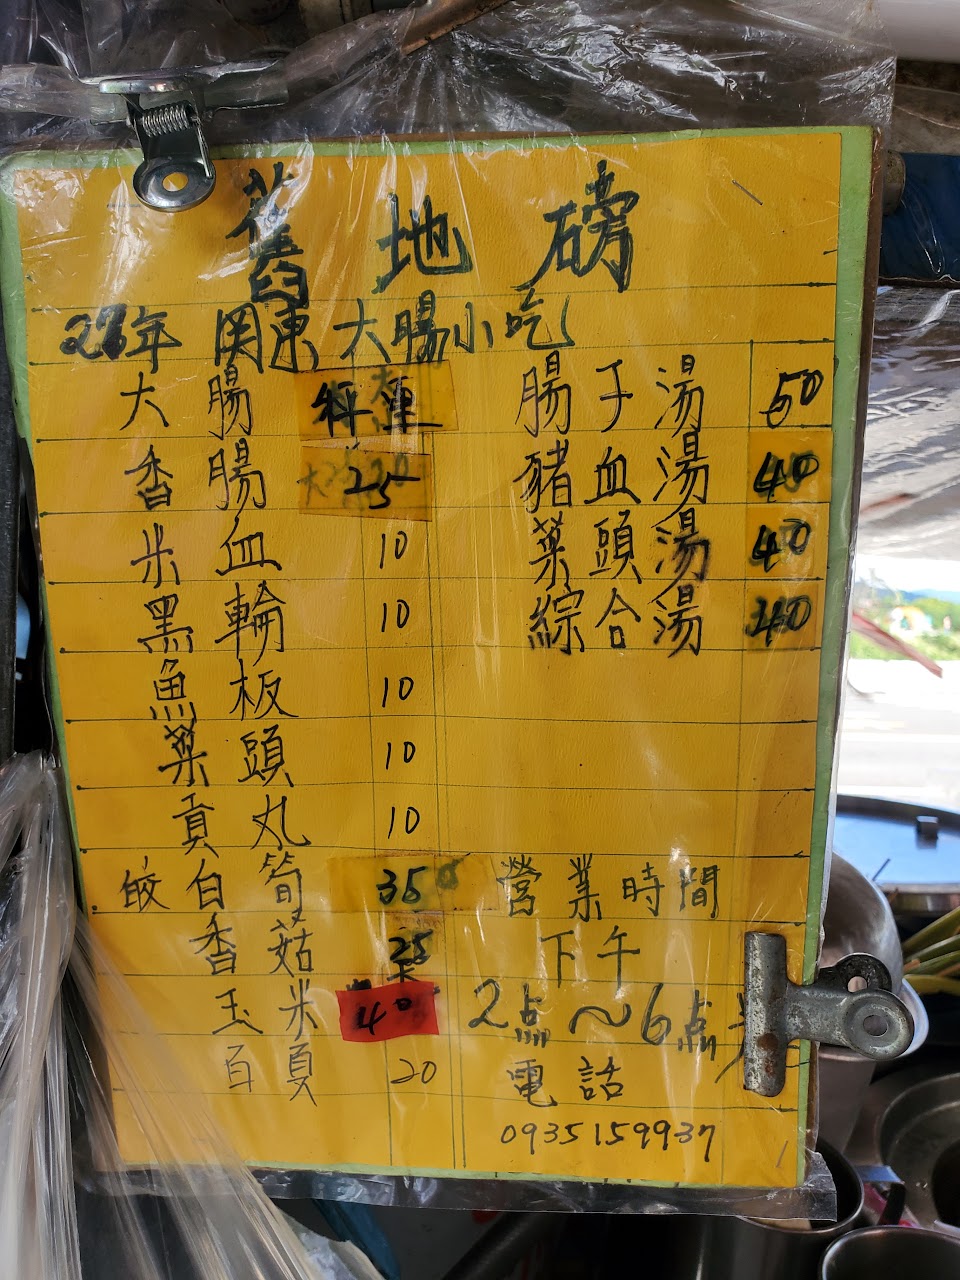 舊地磅
年 関東大腸小吃
大腸 秤重 腸子湯 50
香腸 25 豬血湯 40
米血 10 菜頭湯 40
黑輪 10 綜合湯 40
魚板 10
菜頭 10
貢丸 10
皎白筍 35 營業時間
香菇 25 下午
玉米 40 2点～6点
百頁 20 電話
0935159937